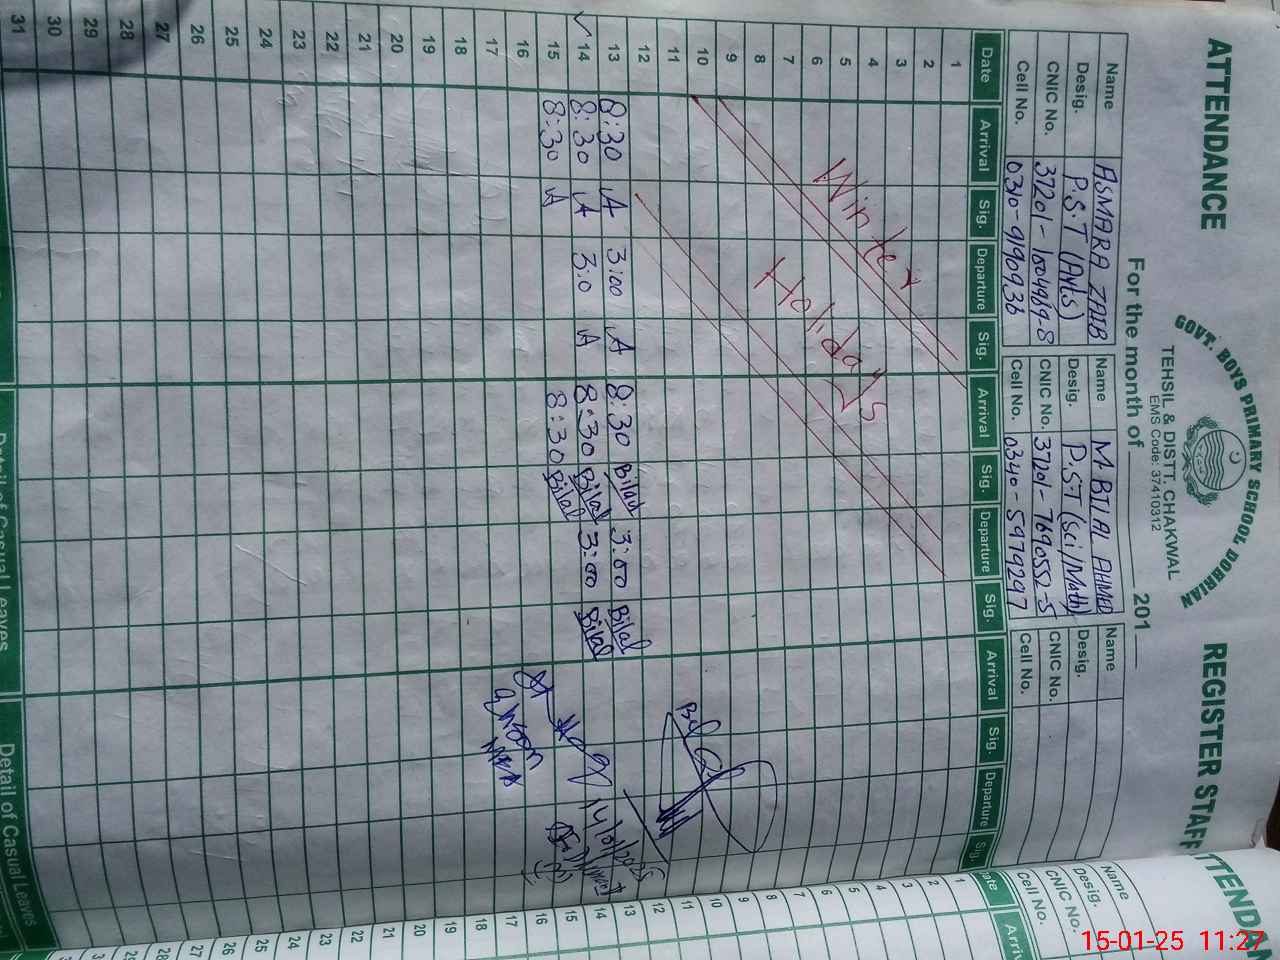 ATTENDANCE
REGISTER STAFF
GOVT. BOYS PRIMARY SCHOOL DOHRIAN
TEHSIL & DISTT. CHAKWAL
EMS Code: 37410312
For the month of 201
Name ASMARA ZAIB Name M.BILAL AHMED Name
Desig. P.S.T (Arts) Desig. P.ST (Sci/Math) Desig.
CNIC No. 37201- CNIC No. 37201-7690552-5 CNIC No.
Cell No. 0310-9190936 Cell No. 0340-5979297 Cell No.
Date Arrival Sig. Departure Sig. Arrival Sig. Departure Sig. Arrival Sig. Departure Sig.
1
2
3
4
5
6
7
8
9
10
11
12
Winter
Holidays
13 8:30 A 3:00 A 8:30 Bilal 3:00 Bilal
14 8:30 A 3:0 A 8:30 Bilal 3:00 Bilal
15 8:30 A 8:30 Bilal
16
17
18
19
20
21
22
23
24
25
26
27
28
29
30
31
Detail of Casual Leaves
Detail of Casual Leaves
Name
Desig.
CNIC No.
Cell No.
1
2
3
4
5
6
7
8
9
10
11
12
13
14
15
16
17
18
20
21
22
23
24
25
26
27
28
15-01-25 11:27